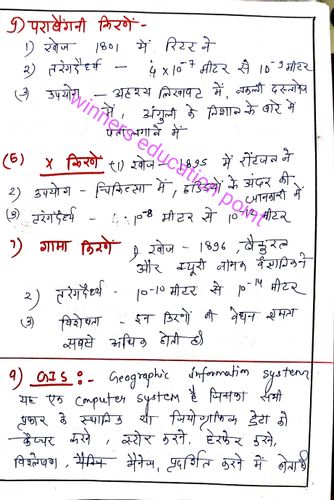 5) पराबैंगनी किरणें -
1) खोज 1801 में रिटर ने
2) तरंगदैर्ध्य - 4×10⁻⁷ मीटर से 10⁻⁹ मीटर
(3) उपयोग - अदृश्य लिखावट में, नकली दस्तावेज
में, अंगुली के निशान के बारे में
पता लगाने में
(6) X किरणें (1) खोज - 1895 में रोंटजन ने
2) उपयोग - चिकित्सा में, हड्डियों के अंदर की
जानकारी में
(3) तरंगदैर्ध्य - 10⁻⁸ मीटर से 10⁻¹² मीटर
7) गामा किरणें 1) खोज - 1896, बैकुरल
और क्यूरी नामक वैज्ञानिक ने
2) तरंगदैर्ध्य - 10-10 मीटर से 10⁻¹⁴ मीटर
(3) विशेषता - इन किरणों की वेधन क्षमता
सबसे अधिक होती है।
9) GIS :- Geographic Information system
यह एक Computer system है जिसका सभी
प्रकार के स्थानिक या जियोग्राफिक डेटा को
कैप्चर करने, स्टोर करने, हेरफेर करने,
विश्लेषण, मैनेज, प्रदर्शित करने में
winners education point